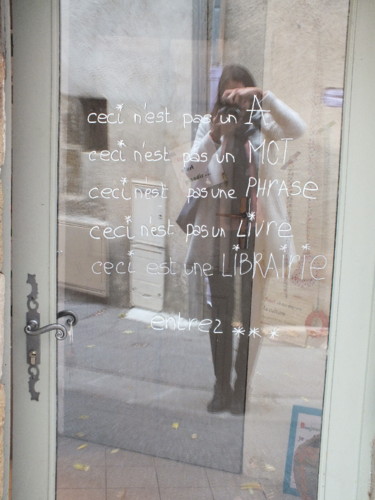 ceci n'est pas un A
ceci n'est pas un MOT
ceci n'est pas une PHRASE
ceci n'est pas un LIVRE
ceci est une LIBRAIRIE
entrez ***